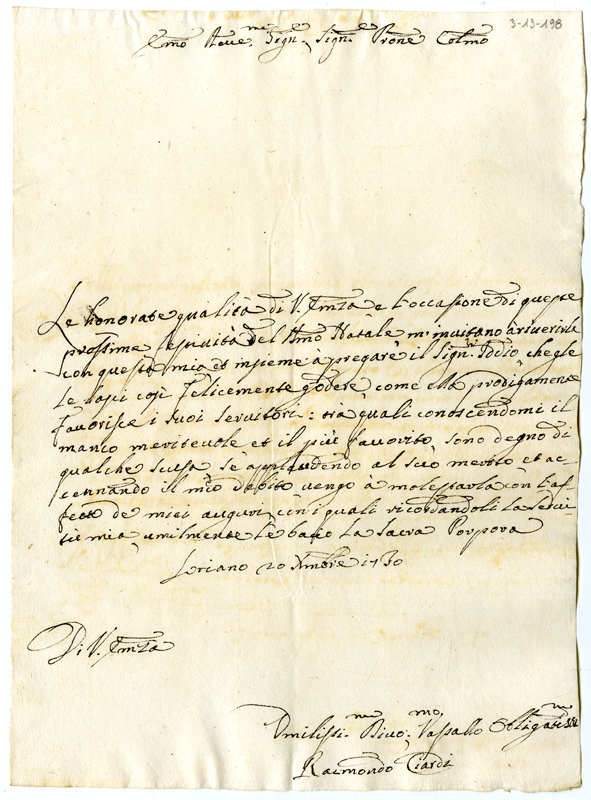 3-13-198
Emo Reue.mo Sign.e Sign.e Prone Colmo
Le honorate qualità di V. Emza e l'occasione di queste
prossime festiuità del Smo Natale m'inuitano à riuerirla
con questa mia et insieme à pregare il Sign. Iddio, che gle
le lasci così felicemente godere come ella prodigamente
fauorisce i suoi seruitori: trà quali conoscendomi il
manco meriteuole et il più fauorito, sono degno di
qualche scusa se applaudendo al suo merito et ac-
cennando il mio debito uengo à molestarla con l'af-
fetto de miei augurij con i quali ricordandoli la serui-
tù mia umilmente le bacio la Sacra Porpora
Loriano 20 Xmbre 1730
Di V. Emza
Vmilissi.mo Diuo.mo Vassallo Obligatis.mo
Raimondo Ciardi